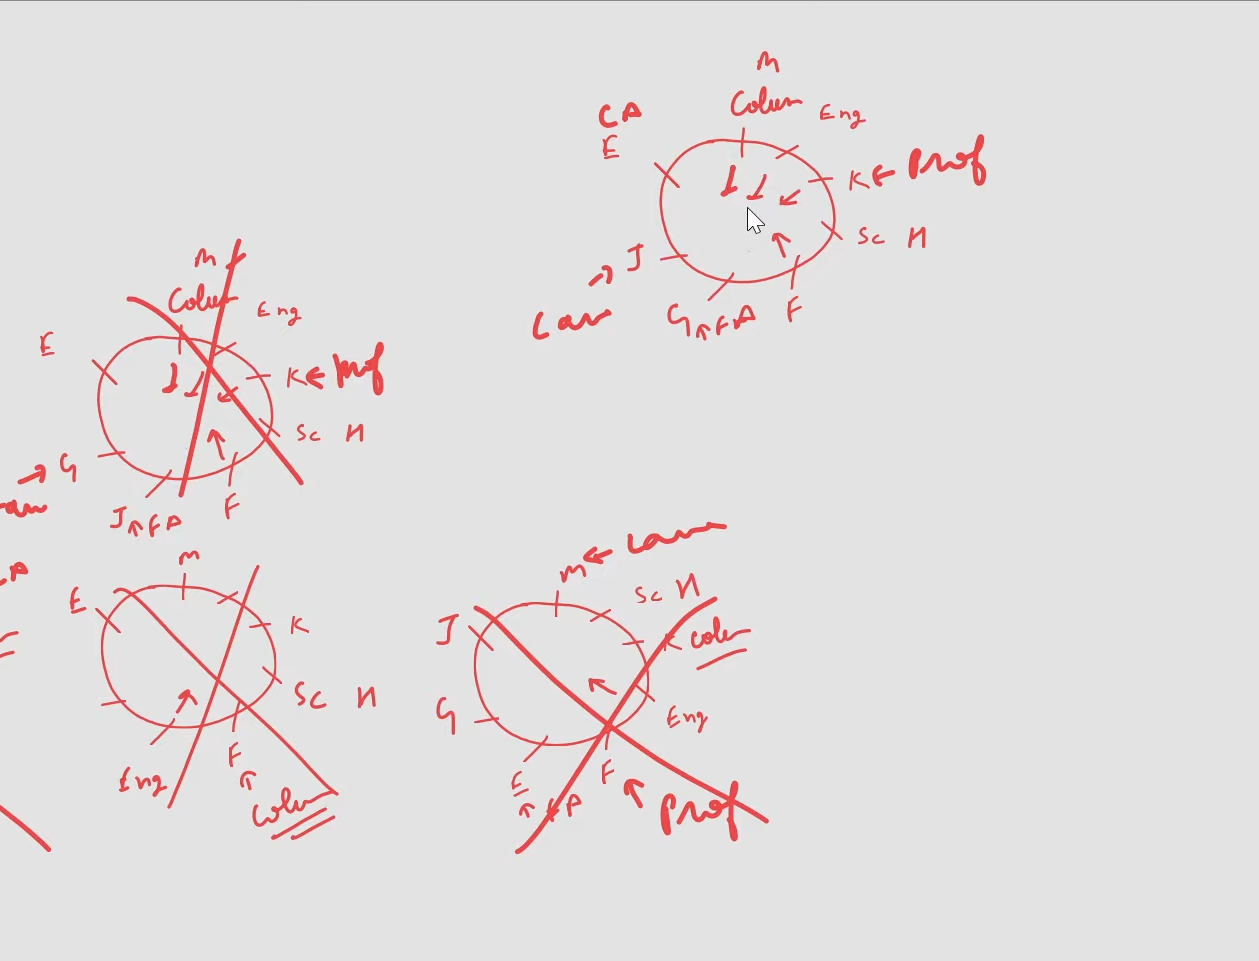 M
Colum
Eng
CA
E
K ← Prof
Sc H
J
Law
G ↑ FA
F
M
Colum
Eng
E
K ← Prof
Sc H
G
J ↑ FA
F
M
E
K
Sc H
Eng
F
Colum
M ← Law
Sc H
J
K Colum
G
Eng
E
F
Prof